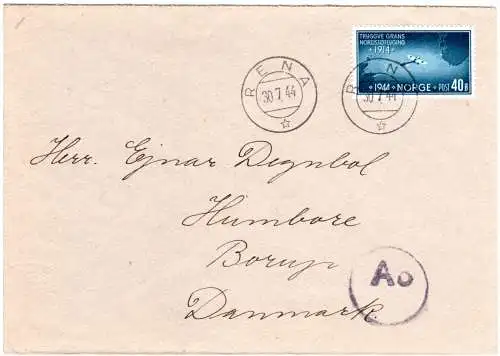 TRYGGVE GRANS
NORDSJØFLYGING
• 1914 •
1944 NORGE POST 40 Ø
RENA
30.7.44
RENA
30.7.44
Herr. Ejnar Degnbol
Humbore
Borup
Danmark.
Ao